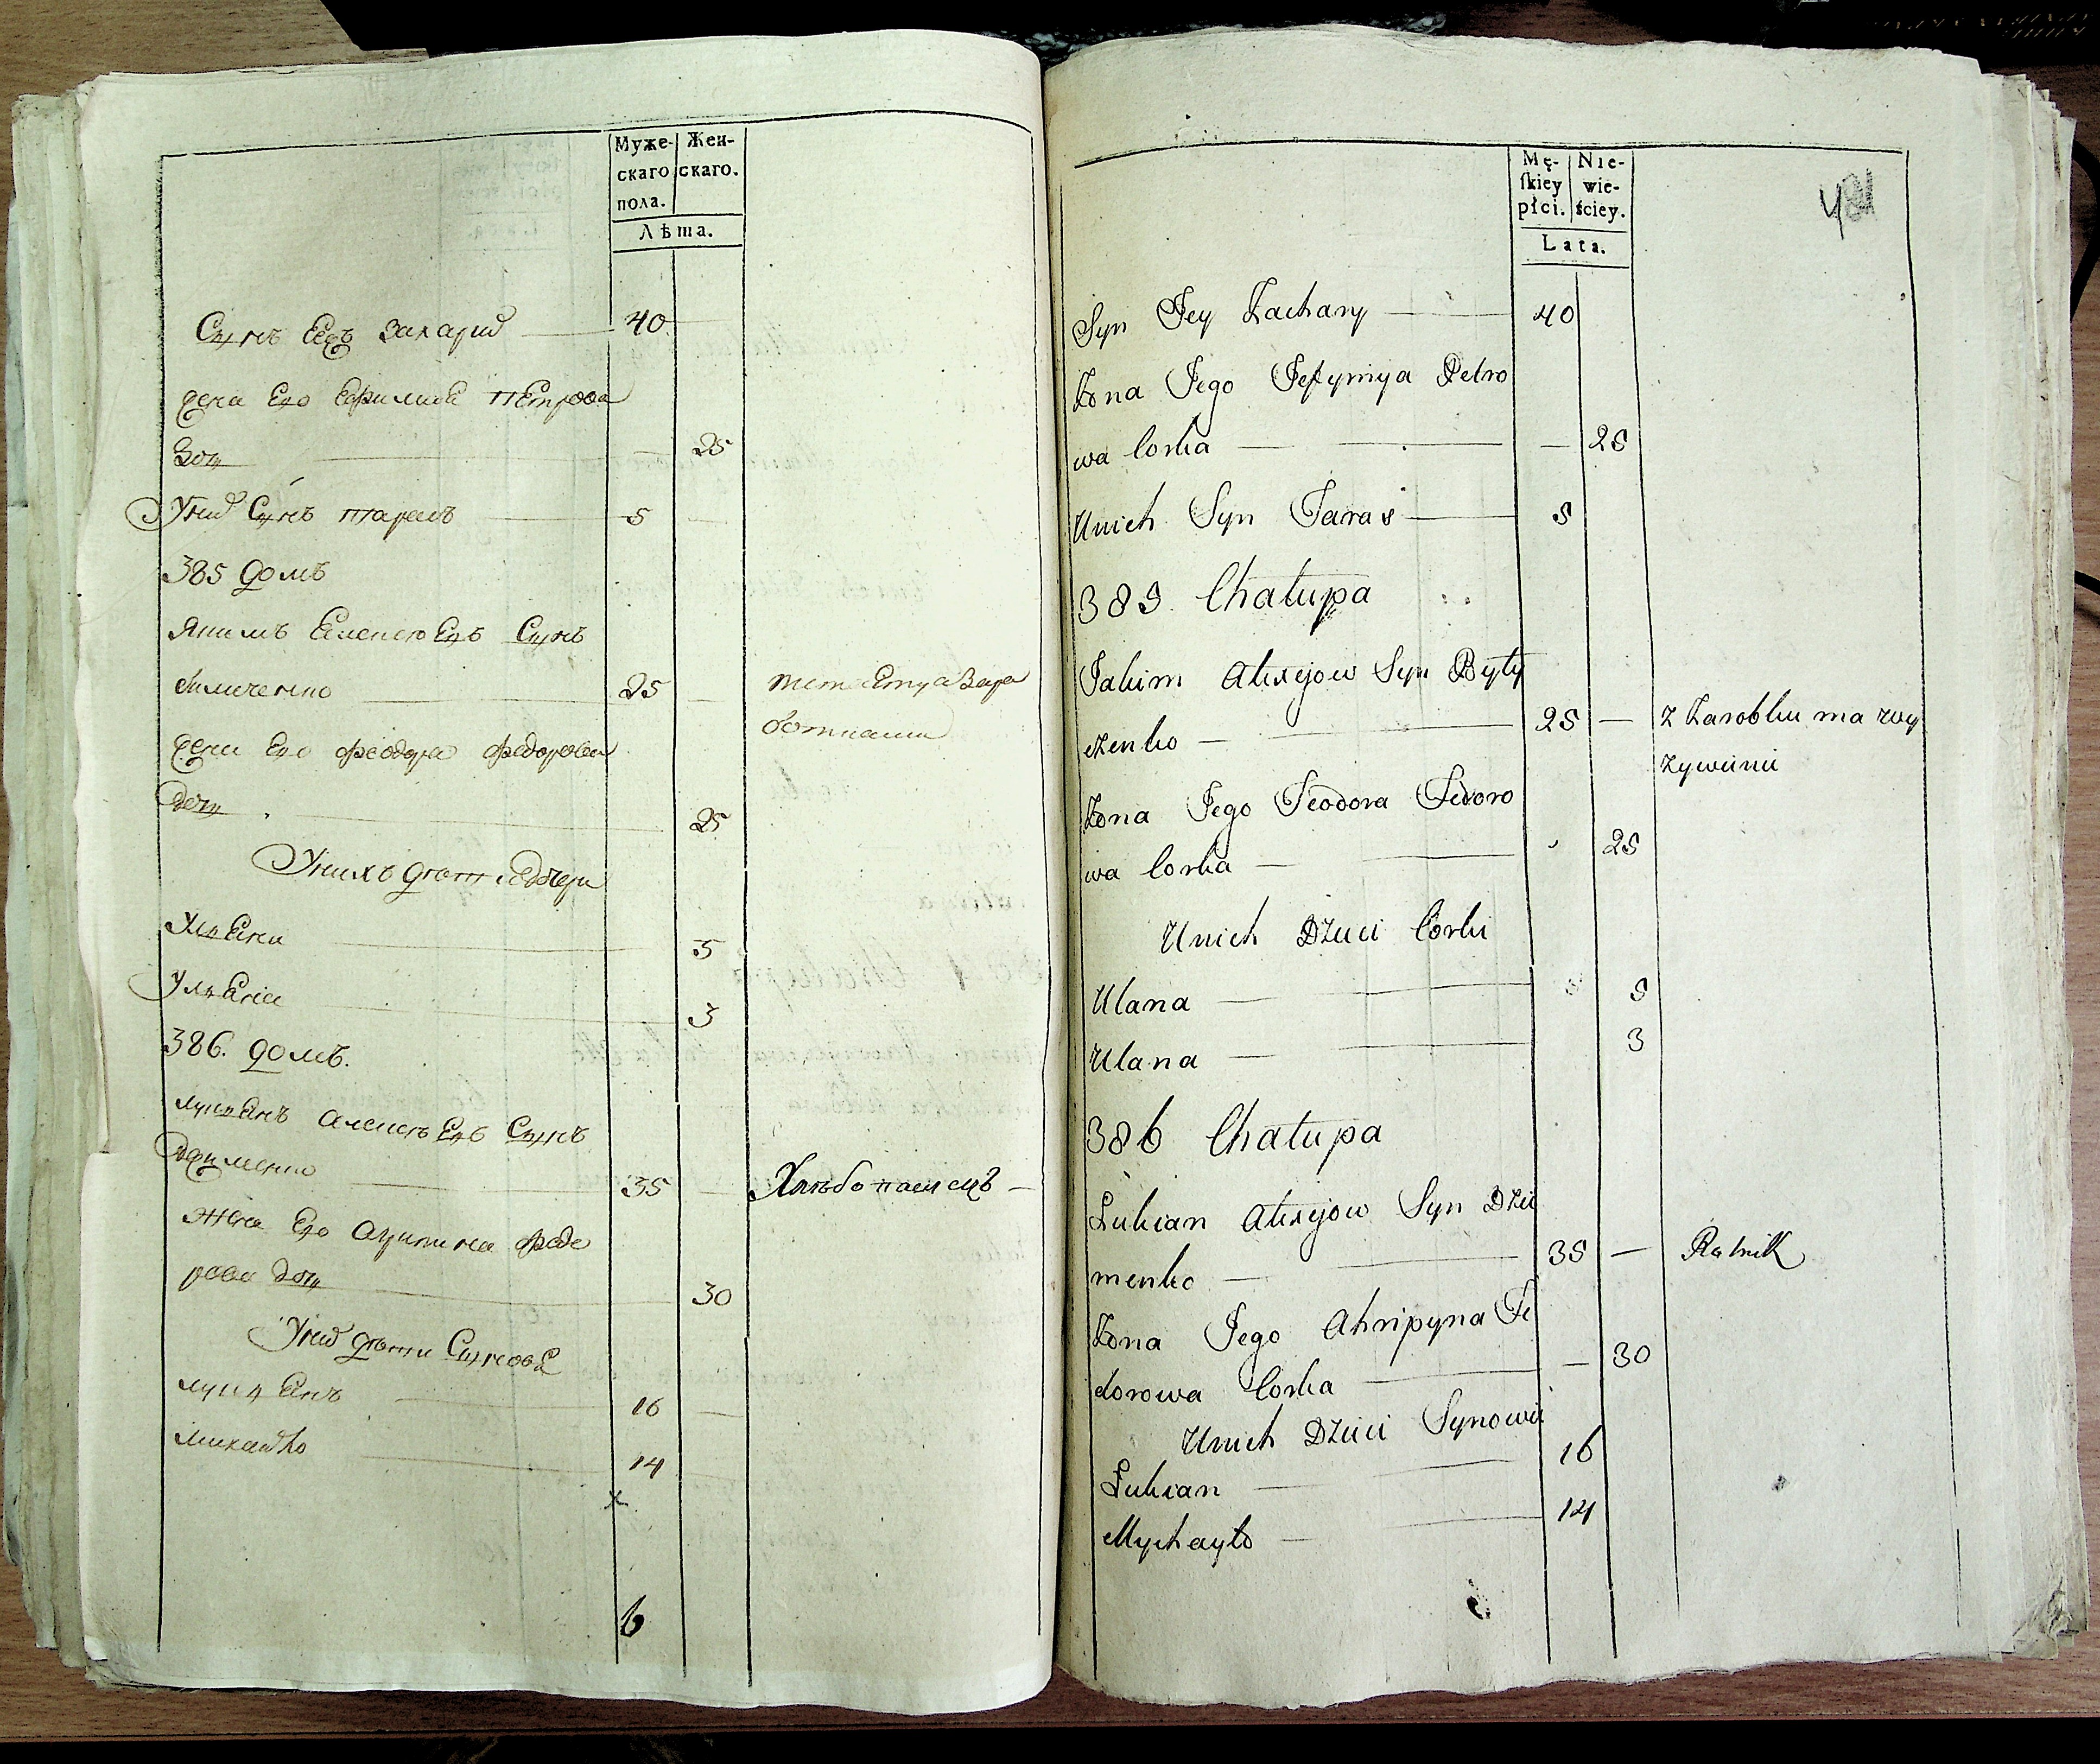 Муже-
скаго
пола.
Жен-
скаго.
Лѣта.
Сынъ Еѣ Захарий 40
жена Его Ефимиѣ Петрова
Доч 25
Уних Сынъ тарасъ 5
385 домъ
Якимъ Алексеевъ Сынъ
25
жена Его феодора федорова
Доч 25
Унихъ дети дочери
Улѣяна 5
Улѣяна 3
386. домъ.
лукѣянъ алексеевъ Сынъ
35 Хлѣбопашецъ
жена Его агрипина федо
рова доч 30
Уних дети Сыновѣ
лукѣянъ 16
михайло 14
x
6
Mę-
ſkiey
płci.
Nie-
wie-
ściey.
Lata.
Syn Jey Zachary 40
Żona Jego Jefymija Petro
wa Corka 25
Unich Syn Taras 5
385. Chałupa
Jakim Alexejow Syn Byty
czenko 25 z Zarobku ma wy
żywienie
Żona Jego Feodora Fedoro
wa Corka 25
Unich Dzieci Córki
Ulana 5
Ulana 3
386 Chałupa
Łukian Alexejow Syn Dzie
menko 35 Rolnik
Żona Jego Ahripyna Fe
dorowa Corka 30
Unich Dzieci Synowie
Łukian 16
Mychayło 14